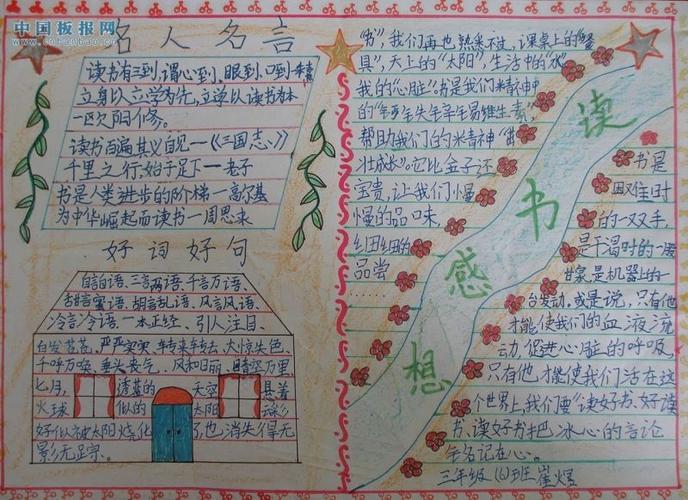 中国板报网
www.cnbanbao.cn
名人名言
读书有三到,谓心到、眼到、口到 朱熹
立身以立学为先,立学以读书为本
一区欠阳修。
读书百遍其义自见—《三国志》
千里之行,始于足下—老子
书是人类进步的阶梯—高尔基
为中华崛起而读书—周恩来
好词好句
自言自语、三言两语、千言万语、
甜言蜜语、胡言乱语、风言风语、
冷言冷语、一本正经、引人注目、
白发苍苍、严严实实、转来转去、大惊失色、
千呼万唤、垂头丧气、风和日丽、晴空万里、
七月,透蓝的天空悬着
火球似的太阳云彩
好似被太阳烧化了,也消失得无
影无踪。
读书感想
"书"我们再也熟悉不过,课桌上的"餐
具",天上的"太阳",生活中的"水"
我的"心脏"。书是我们精神中
的
帮助我们的精神"茁
壮成长"。它比金子还
宝贵,让我们慢
慢的品味,
细细的
品尝
书是
困难时
的一双手,
是干渴时的一股
甘泉,是机器上的一
台发动,或是说,只有他
才能使我们的血液流
动,促进心脏的呼吸,
只有他,才能使我们活在这
个世界上,我们要"读好书、好读
书、读好书"把冰心的言论
牢名记在心。
三年级(6)班 崔煜